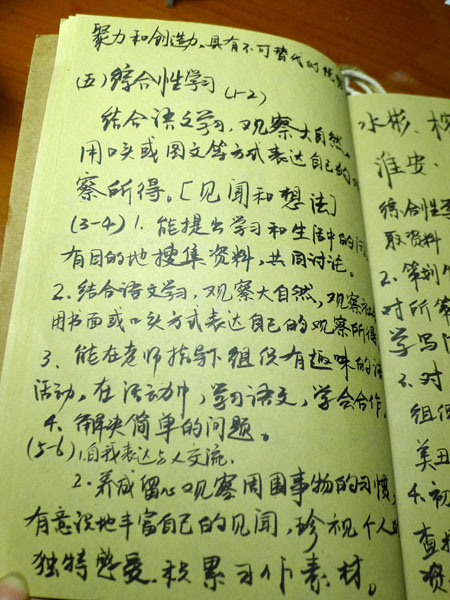 聚力和创造力,具有不可替代的
(五)综合性学习
(1-2)
结合语文学习,观察大自然。
用口头或图文等方式表达自己的
察所得。[见闻和想法]
(3-4) 1. 能提出学习和生活中的问
有目的地搜集资料,共同讨论。
2. 结合语文学习,观察大自然,观察社
用书面或口头方式表达自己的观察所得
3. 能在老师指导下组织有趣味的语
活动,在活动中,学习语文,学会合作
4. 解决简单的问题。
(5-6) 1.自我表达与人交流.
2. 养成留心观察周围事物的习惯,
有意识地丰富自己的见闻,珍视个人
独特感受.积累习作素材。
水彬、
淮安、
综合性
取资料
2. 策划
对所策
学写
3. 对
组
美丑
4. 初
查找
资